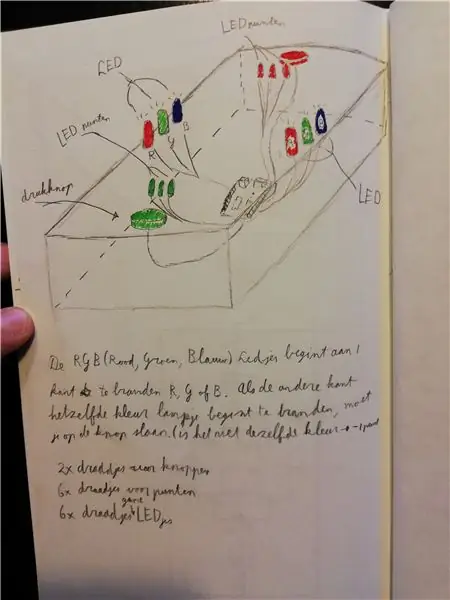 LED punten
LED
LED punten
R G B
R G B
drukknop
LED
De RGB (Rood, Groen, Blauw) Ledjes begint aan 1
kant te branden R, G of B. Als de andere kant
hetzelfde kleur lampje begint te branden, moet
je op de knop slaan. (is het niet dezelfde kleur → -1 punt
2x draadjes voor knoppen
6x draadjes voor punten
6x draadjes game LEDjes